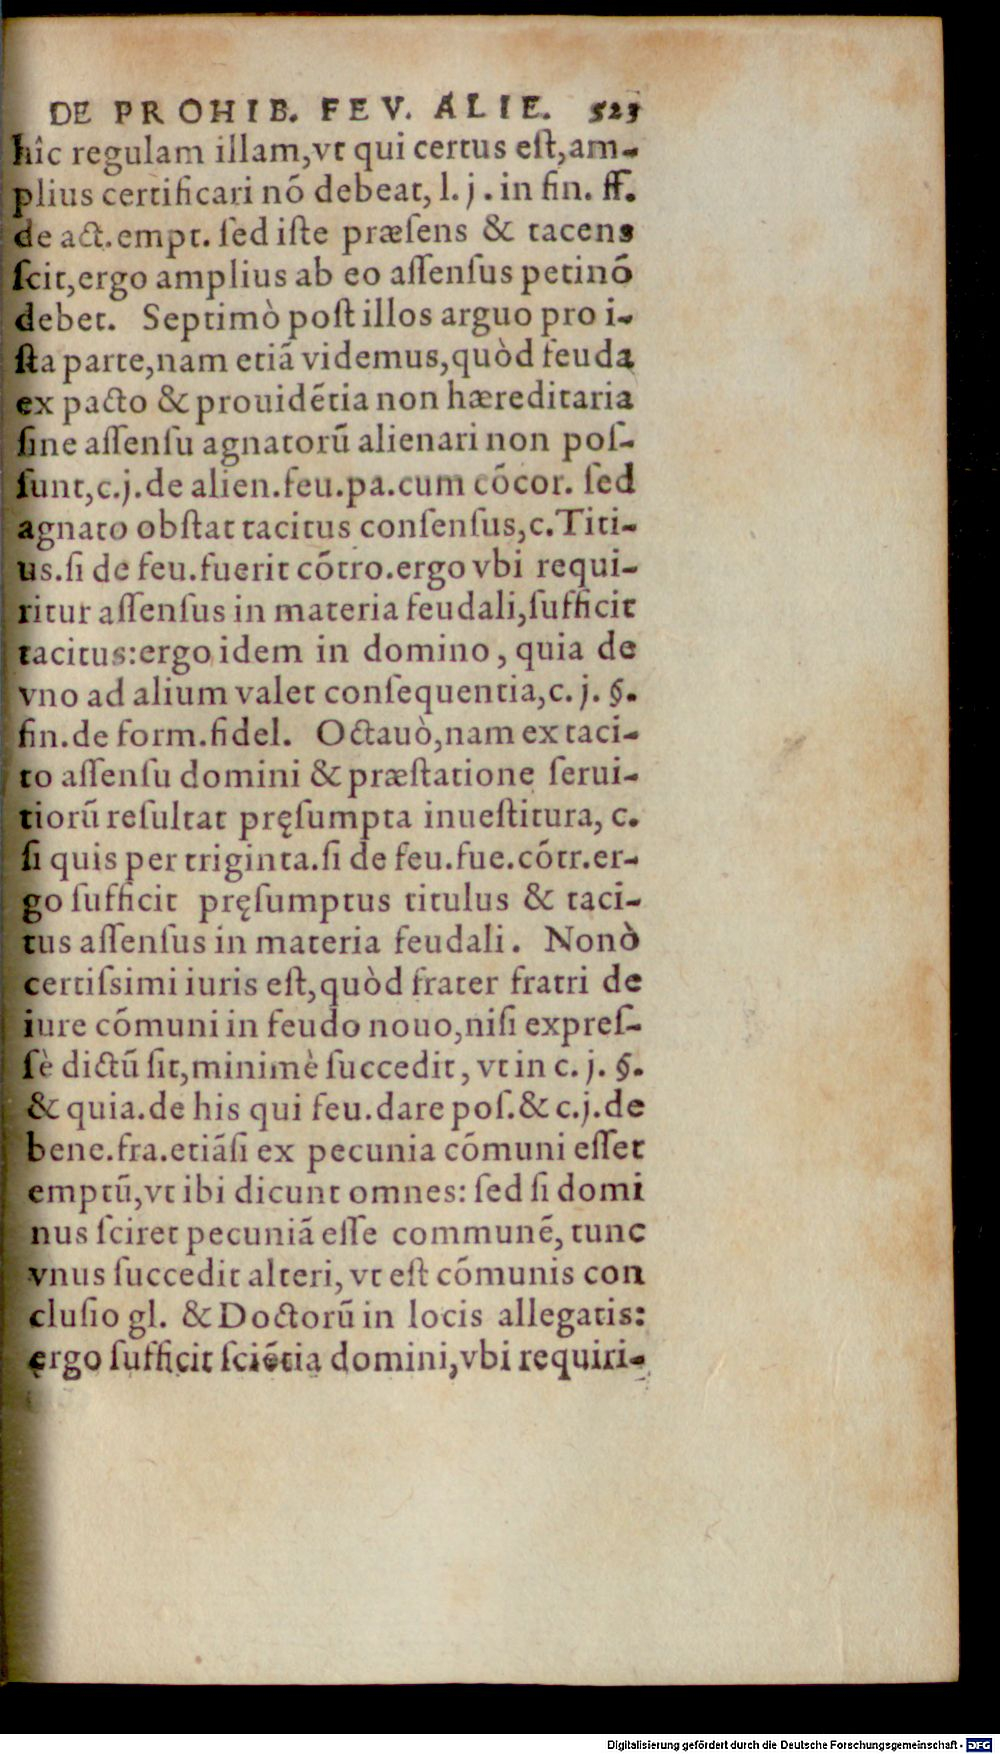 DE PROHIB. FEV. ALIE. 523
hîc regulam illam,vt qui certus eſt,am-
plius certificari nõ debeat, l. j. in fin. ff.
de act.empt. ſed iſte præſens & tacens
ſcit,ergo amplius ab eo aſſenſus peti nõ
debet. Septimò poſt illos arguo pro i-
ſta parte,nam etiã videmus,quòd feuda
ex pacto & prouidẽtia non hæreditaria
ſine aſſenſu agnatorũ alienari non poſ-
ſunt,c.j.de alien.feu.pa.cum cõcor. ſed
agnato obſtat tacitus conſenſus,c.Titi-
us.ſi de feu.fuerit cõtro.ergo vbi requi-
ritur aſſenſus in materia feudali,ſufficit
tacitus:ergo idem in domino, quia de
vno ad alium valet conſequentia,c. j. §.
fin.de form.fidel. Octauò,nam ex taci-
to aſſenſu domini & præſtatione ſerui-
tiorũ reſultat pręſumpta inueſtitura, c.
ſi quis per triginta.ſi de feu.fue.cõtr.er-
go ſufficit pręſumptus titulus & taci-
tus aſſenſus in materia feudali. Nonò
certiſsimi iuris eſt,quòd frater fratri de
iure cõmuni in feudo nouo,niſi expreſ-
ſè dictũ ſit,minimè ſuccedit, vt in c. j. §.
& quia.de his qui feu.dare poſ.& c.j.de
bene.fra.etiãſi ex pecunia cõmuni eſſet
emptũ,vt ibi dicunt omnes: ſed ſi domi
nus ſciret pecuniã eſſe communẽ, tunc
vnus ſuccedit alteri, vt eſt cõmunis con
cluſio gl. & Doctorũ in locis allegatis:
ergo ſufficit ſciẽtia domini,vbi requiri-
Digitalisierung gefördert durch die Deutsche Forschungsgemeinschaft - DFG